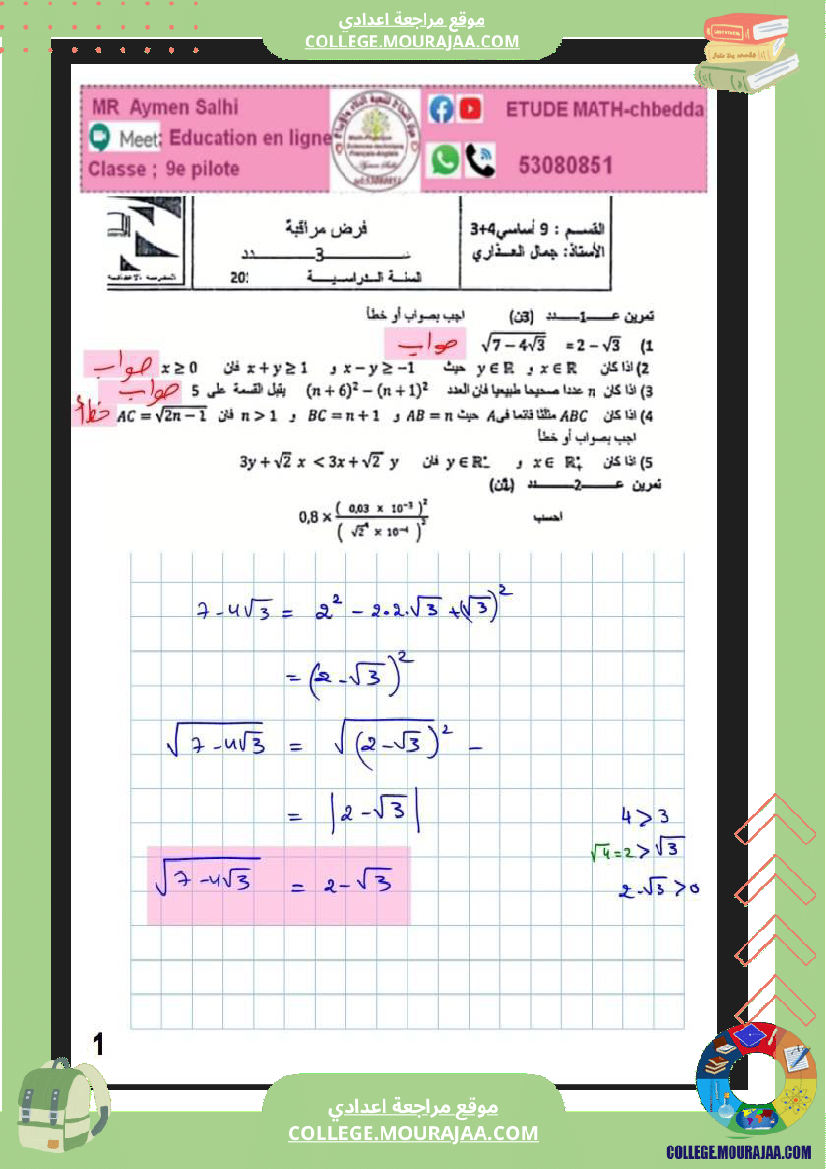 موقع مراجعة اعدادي
COLLEGE.MOURAJAA.COM
MR Aymen Salhi
Meet: Education en ligne
Classe ; 9e pilote
ETUDE MATH-chbedda
53080851
القسم : 9 أساسي 4+3
الأستاذ: جمال العذاري
فرض مراقبة
عدد 3
السنة الدراسية 20
تمرين عدد 1 (3ن) اجب بصواب أو خطأ
1) √(7 − 4√3) = 2 − √3 صواب
2) اذا كان x ∈ ℝ و y ∈ ℝ حيث x − y ≥ −1 و x + y ≥ 1 فان x ≥ 0 صواب
3) اذا كان n عددا صحيحا طبيعيا فان العدد (n + 6)² − (n + 1)² يقبل القسمة على 5 صواب
4) اذا كان ABC مثلثا قائما في A حيث AB = n و BC = n + 1 و n > 1 فان AC = √(2n − 1) خطأ
اجب بصواب أو خطأ
5) اذا كان x ∈ ℝ₊* و y ∈ ℝ₋* فان 3y + √2 x < 3x + √2 y
تمرين عدد 2 (1ن)
احسب 0,8 × (0,03 × 10⁻³)² / (√2⁴ × 10⁻⁴)²
7 - 4√3 = 2² - 2·2·√3 + (√3)²
= (2 - √3)²
√(7 - 4√3) = √((2 - √3)²) -
= |2 - √3|
4 > 3
√4 = 2 > √3
√(7 - 4√3) = 2 - √3
2 - √3 > 0
1
موقع مراجعة اعدادي
COLLEGE.MOURAJAA.COM
COLLEGE.MOURAJAA.COM